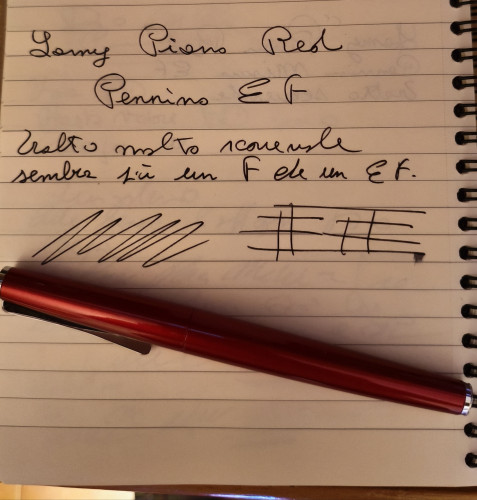 Lamy Piano Red
Pennino EF
Molto molto scorrevole
sembra più un F che un EF.